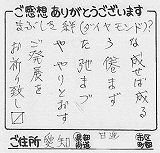 ご感想 ありがとうございます
まぶしき絆(ダイヤモンド)?
成せば成る
倦まず
弛まづ
やりとおす
ご発展を
お祈り致し〼
ご住所 愛知 都道府県 市区町村